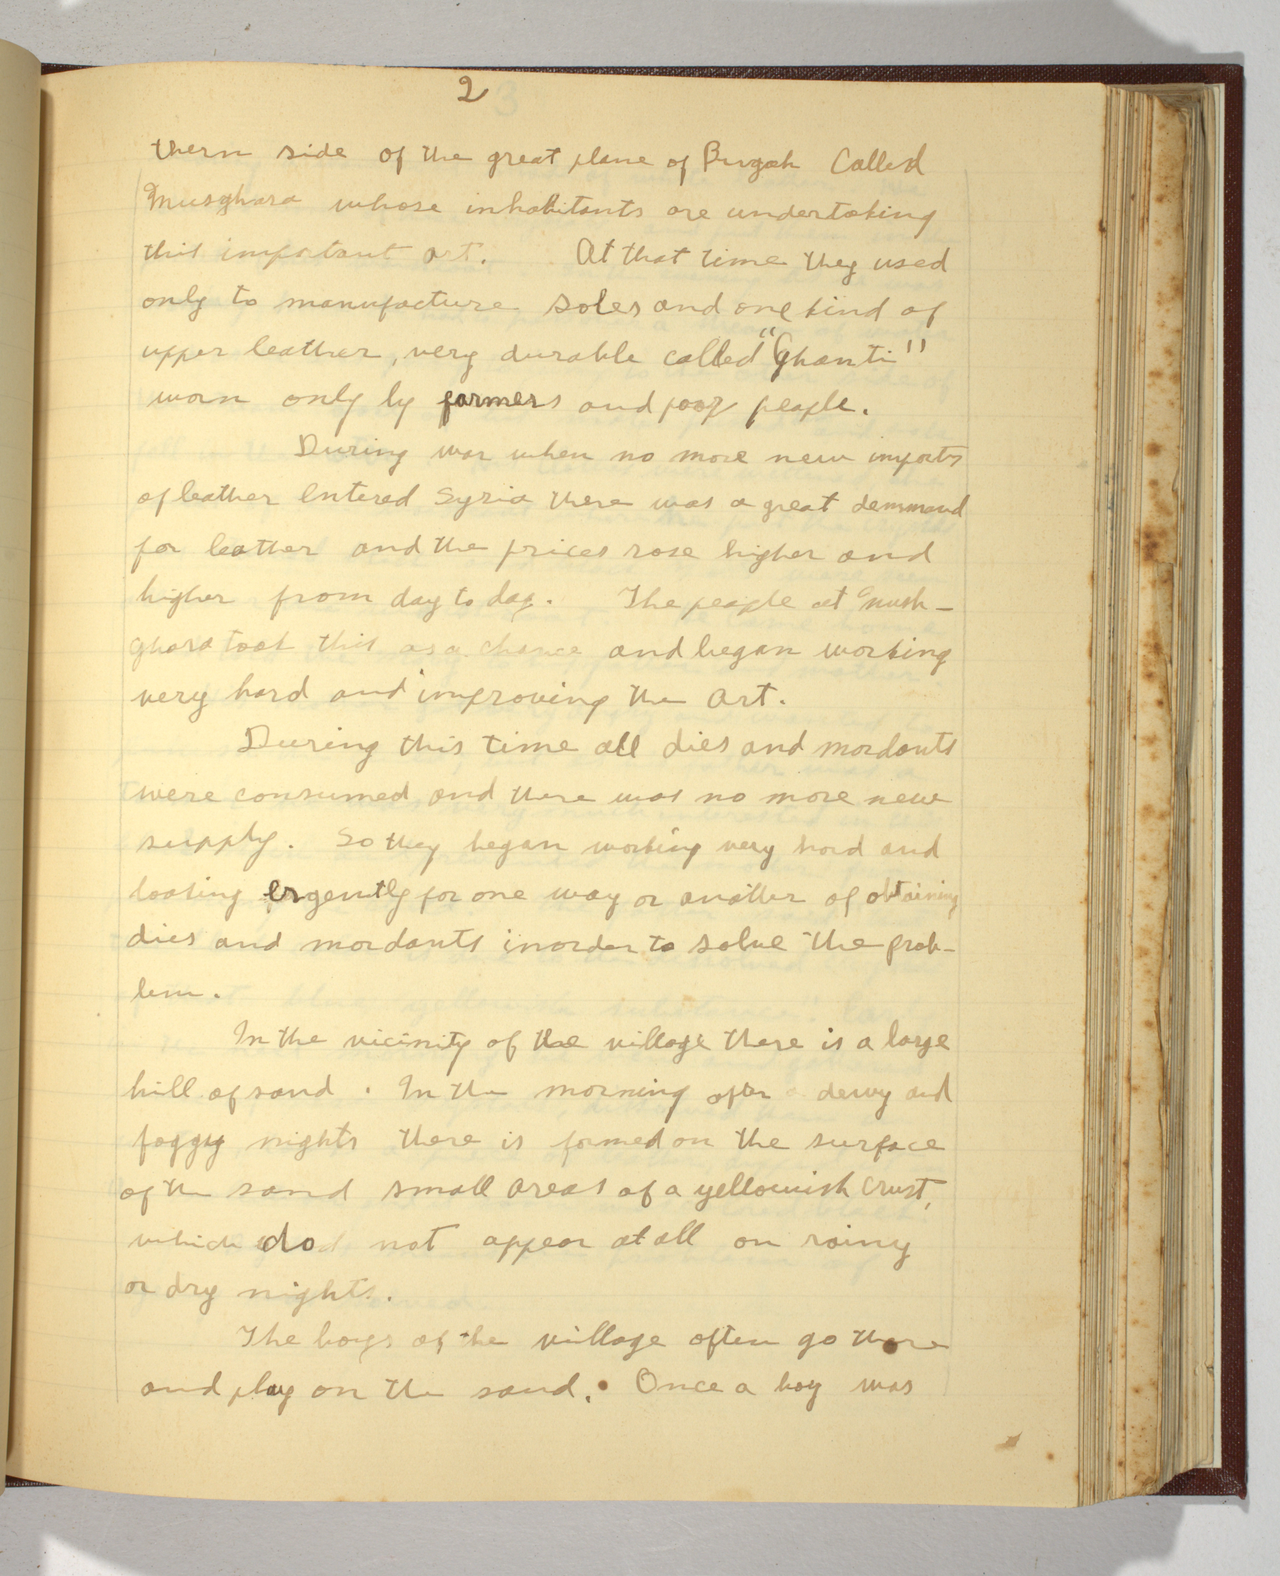 2
thern side of the great plane of Buqah Called
Musghara whose inhabitants are undertaking
this important art. At that time they used
only to manufacture soles and one kind of
upper leather, very durable called "Ghanti"
worn only by farmers and poor people.
During war when no more new imports
of leather entered Syria there was a great demmand
for leather and the prices rose higher and
higher from day to day. The people at Mush-
ghara took this as a chance and began working
very hard and improving the art.
During this time all dies and mordants
were consumed and there was no more new
supply. So they began working very hard and
looking urgently for one way or another of obtaining
dies and mordants inorder to solve the prob-
lem.
In the vicinity of the village there is a large
hill of sand. In the morning after a dewy and
foggy nights there is formed on the surface
of the sand small areas of a yellowish crust,
which do not appear at all on rainy
or dry nights.
The boys of the village often go there
and play on the sand. Once a boy was